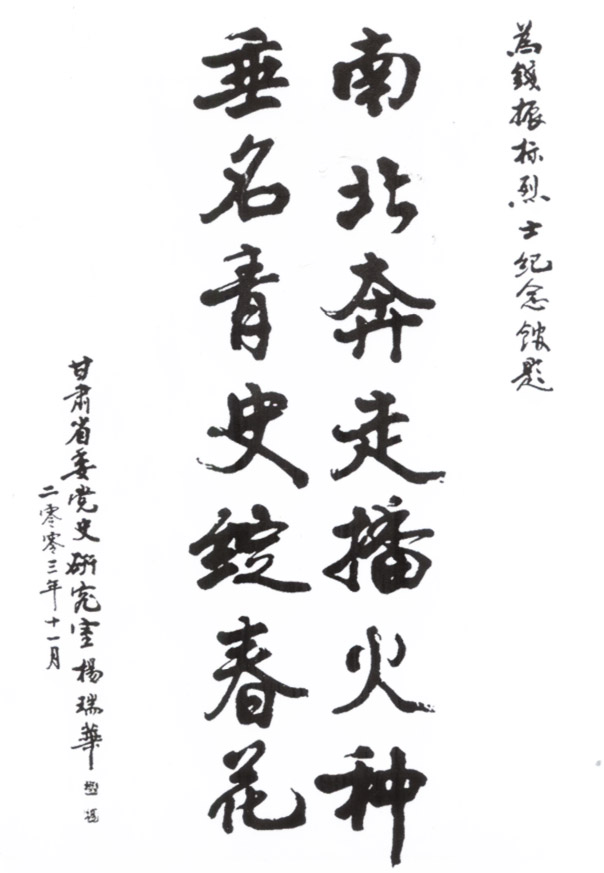 為錢振标烈士纪念馆题
南北奔走播火种
垂名青史绽春花
甘肃省委党史研究室楊瑞華
二零零三年十一月